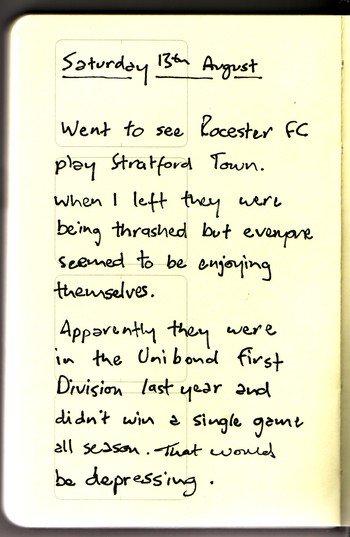 Saturday 13th August
Went to see Rocester FC
play Stratford Town.
When I left they were
being thrashed but everyone
seemed to be enjoying
themselves.
Apparently they were
in the Unibond First
Division last year and
didn't win a single game
all season. That would
be depressing.